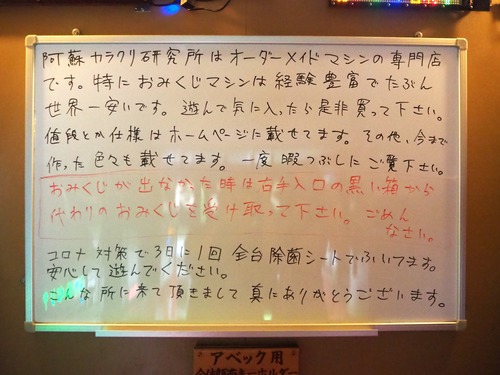 阿蘇カラクリ研究所はオーダーメイドマシンの専門店
です。特におみくじマシンは経験豊富でたぶん
世界一安いです。遊んで気に入ったら是非買って下さい。
値段とか仕様はホームページに載せてます。その他、今まで
作った色々も載せてます。一度暇つぶしにご覧下さい。
おみくじが出なかった時は右手入口の黒い箱から
代わりのおみくじを受け取って下さい。ごめん
なさい。
コロナ対策で3日に1回全台除菌シートでふいてます。
安心して遊んでください。
こんな所に来て頂きまして真にありがとうございます。
アベック用